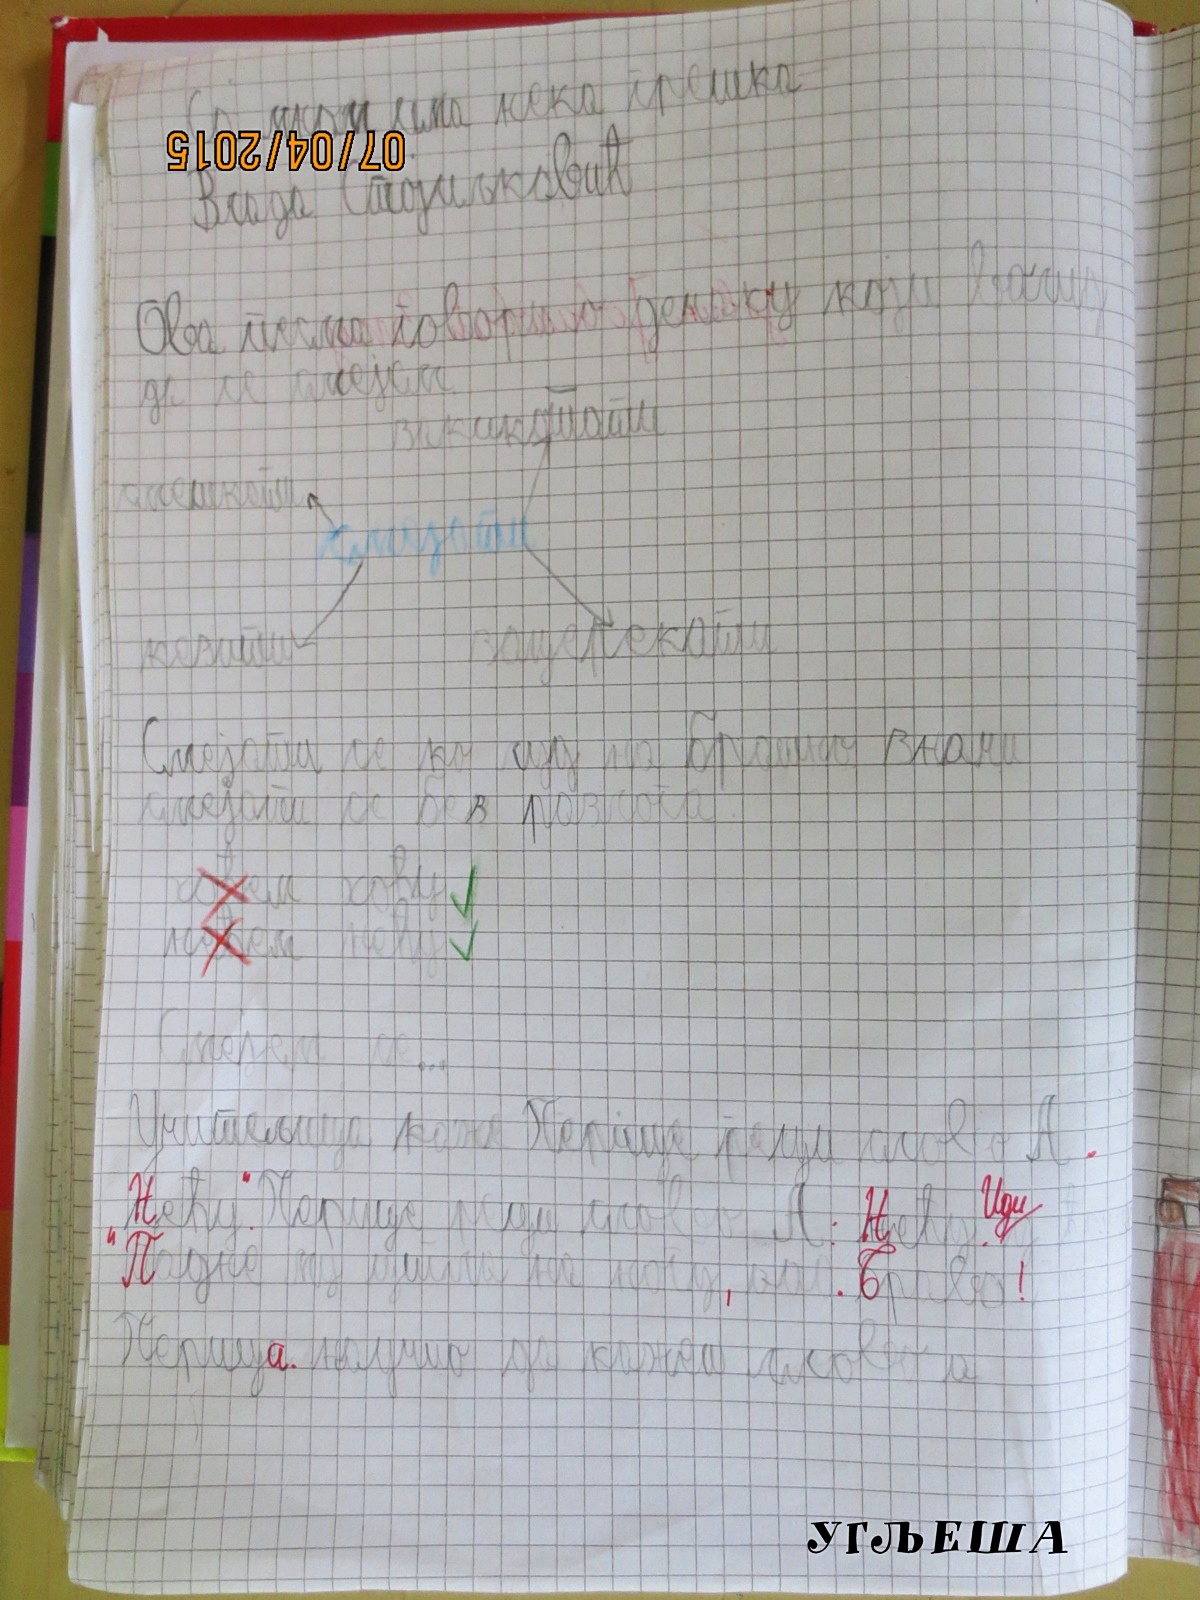 Са мном има нека грешка
07/04/2015
Влада Стојиљковић
Ова песма говори о дечаку који воли
да се смејем
закикотати
смешкати
смејати
кезити
зацерекати
Смејати се ко луд на брашно значи
смејати се без разлога.
хоћем хоћу ✓
нећем нећу ✓
Смејем се...
Учитељица каже Перице реци слово А.
Нећу". Перице реци слово А. Нећу. Иди
"Падне му на ногу, . Браво!
Перица. научио да каже слово а
УГЉЕША